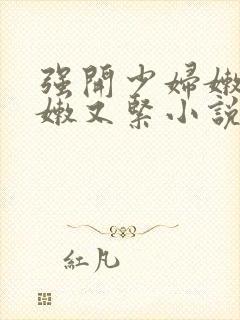 强開少婦嫩
嫩又緊小說
紅凡